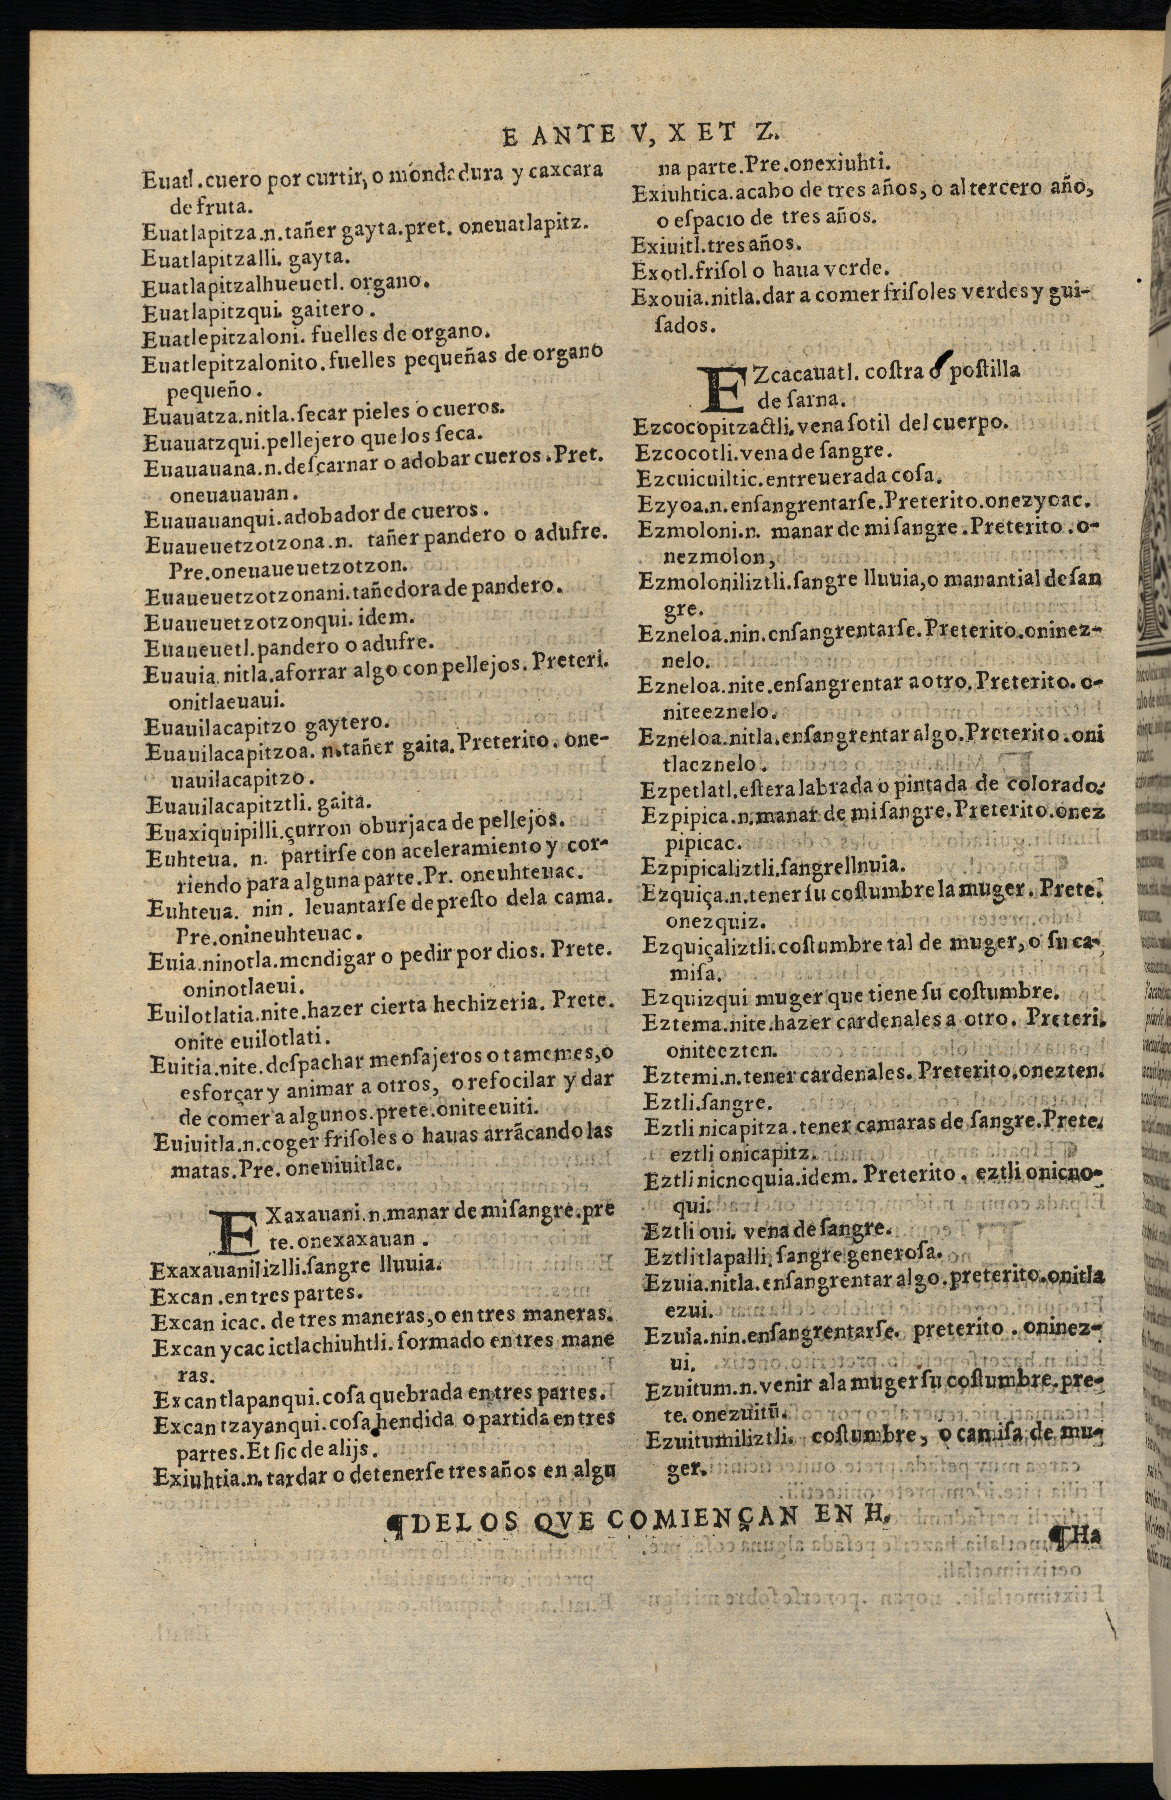 E ANTE V, X ET Z.
Euatl.cuero por curtir, o mondadura y caxcara
de fruta.
Euatlapitza.n.tañer gayta.pret. oneuatlapitz.
Euatlapitzalli. gayta.
Euatlapitzalhueuetl. organo.
Euatlapitzqui. gaitero.
Euatlepitzaloni. fuelles de organo.
Euatlepitzalonito.fuelles pequeñas de organo
pequeño.
Euauatza.nitla.ſecar pieles o cueros.
Euauatzqui.pellejero que los ſeca.
Euauauana.n.deſcarnar o adobar cueros.Pret.
oneuauauan.
Euauauanqui.adobador de cueros.
Euaueuetzotzona.n. tañer pandero o adufre.
Pre.oneuaueuetzotzon.
Euaueuetzotzonani.tañedora de pandero.
Euaueuetzotzonqui. idem.
Euaueuetl.pandero o adufre.
Euauia.nitla.aforrar algo con pellejos. Preteri.
onitlaeuaui.
Euauilacapitzo gaytero.
Euauilacapitzoa. n.tañer gaita.Preterito. one-
uauilacapitzo.
Euauilacapitztli. gaita.
Euaxiquipilli.çurron oburjaca de pellejos.
Euhteua. n. partirſe con aceleramiento y cor-
riendo para alguna parte.Pr. oneuhteuac.
Euhteua. nin. leuantarſe de preſto dela cama.
Pre.onineuhteuac.
Euia.ninotla.mendigar o pedir por dios. Prete.
oninotlaeui.
Euilotlatia.nite.hazer cierta hechizeria. Prete.
onite euilotlati.
Euitia.nite.deſpachar menſajeros o tamemes,o
esforçar y animar a otros, o refocilar y dar
de comer a algunos.prete.oniteeuiti.
Euiuitla.n.coger friſoles o hauas arrãcando las
matas.Pre. oneuiuitlac.
EXaxauani.n.manar de mi ſangre.pre
te.onexaxauan.
Exaxauanilizlli.ſangre lluuia.
Excan.en tres partes.
Excan icac. de tres maneras,o en tres maneras.
Excan ycac ictlachiuhtli. formado en tres mane
ras.
Excan tlapanqui.coſa quebrada en tres partes.
Excan tzayanqui.coſa hendida o partida en tres
partes.Et ſic de alijs.
Exiuhtia.n.tardar o detenerſe tres años en algu
na parte.Pre.onexiuhti.
Exiuhtica.acabo de tres años, o al tercero año,
o eſpacio de tres años.
Exiuitl.tres años.
Exotl.friſol o haua verde.
Exouia.nitla.dar a comer friſoles verdes y gui-
ſados.
EZcacauatl. coſtra o poſtilla
de ſarna.
Ezcocopitzactli.vena ſotil del cuerpo.
Ezcocotli.vena de ſangre.
Ezcuicuiltic.entreuerada coſa.
Ezyoa.n.enſangrentarſe.Preterito.onezyoac.
Ezmoloni.n. manar de mi ſangre.Preterito.o-
nezmolon,
Ezmoloniliztli.ſangre lluuia,o manantial de ſan
gre.
Ezneloa.nin.enſangrentarſe.Preterito.oninez-
nelo.
Ezneloa.nite.enſangrentar a otro.Preterito. o-
niteeznelo.
Ezneloa.nitla.enſangrentar algo.Preterito.oni
tlaeznelo.
Ezpetlatl.eſtera labrada o pintada de colorado.
Ezpipica.n.manar de mi ſangre.Preterito.onez
pipicac.
Ezpipicaliztli.ſangrelluuia.
Ezquiça.n.tener ſu coſtumbre la muger. Prete.
onezquiz.
Ezquiçaliztli.coſtumbre tal de muger,o ſu ca-
miſa.
Ezquizqui muger que tiene ſu coſtumbre.
Eztema.nite.hazer cardenales a otro. Preteri.
oniteezten.
Eztemi.n.tener cardenales. Preterito.onezten.
Eztli.ſangre.
Eztli nicapitza.tener camaras de ſangre.Prete.
eztli onicapitz.
Eztli nicnoquia.idem. Preterito. eztli onicno-
qui.
Eztli oui. vena de ſangre.
Eztlitlapalli.ſangre generoſa.
Ezuia.nitla.enſangrentar algo.preterito.onitla
ezui.
Ezuia.nin.enſangrentarſe. preterito. oninez-
ui.
Ezuitum.n.venir ala muger ſu coſtumbre.pre-
te.onezuitũ.
Ezuitumiliztli. coſtumbre, o camiſa de mu-
ger.
¶DE LOS QVE COMIENÇAN EN H.
¶Ha